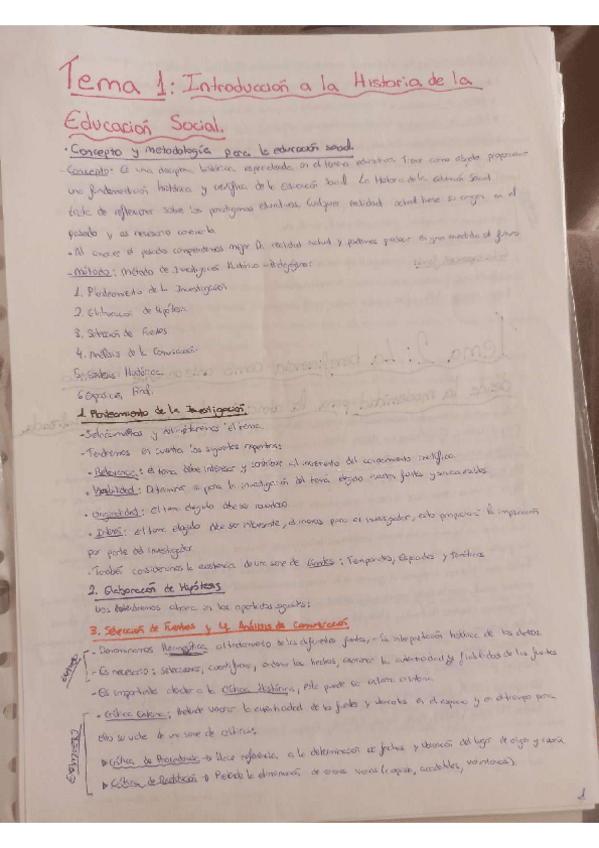 Tema 1: Introducción a la Historia de la
Educación Social.
• Concepto y metodología para la educación social.
- Concepto: Es una disciplina histórica especializada en el terreno educativo. Tiene como objeto proporcionar
una fundamentación histórica y científica de la Educación Social. La Historia de la Educación Social
trata de reflexionar sobre los paradigmas educativos. Cualquier realidad actual tiene su origen en el
pasado y es necesario conocerla.
• Al conocer el pasado comprendemos mejor la realidad actual y podemos predecir en gran medida el futuro
- Método: Método de Investigación Histórico-Pedagógico:
1. Planteamiento de la Investigación
2. Elaboración de Hipótesis
3. Selección de Fuentes
4. Análisis de la Comunicación
5. Síntesis Histórica
6. Exposición Final.
1. Planteamiento de la Investigación
- Seleccionamos y delimitaremos el tema.
- Tendremos en cuenta los siguientes
• Relevancia: El tema debe interesar y contribuir al incremento del conocimiento científico.
• Viabilidad: Determinar si para la investigación del tema elegido existen fuentes y son accesibles.
• Originalidad: El tema elegido debe ser novedoso
• Interés: El tema elegido debe ser interesante, al menos para el investigador, esto propiciará la implicación
por parte del investigador
- También consideraremos la existencia de una serie de límites: Temporales, Espaciales y Temáticos
2. Elaboración de Hipótesis
Las ahora en los apartados siguientes:
3. Selección de Fuentes y 4. Análisis de Comunicación
- Denominamos Heurística al tratamiento de las diferentes fuentes, la interpretación histórica de los datos.
- Es necesario: seleccionar, cuantificar, ordenar los hechos, examinar la autenticidad y fiabilidad de las fuentes
- Es importante atender a la Crítica Histórica, esta puede ser externa o interna.
• Crítica Externa: Pretende valorar la autenticidad de las fuentes y ubicarlas en el espacio y en el tiempo para
ello se vale de una serie de críticas:
▸ Crítica de Procedencia → Hace referencia a la determinación de fechas y ubicación del lugar de origen y autoría
▸ Crítica de Restitución → Pretende la eliminación de errores varios (copistas, accidentales, voluntarios).
1